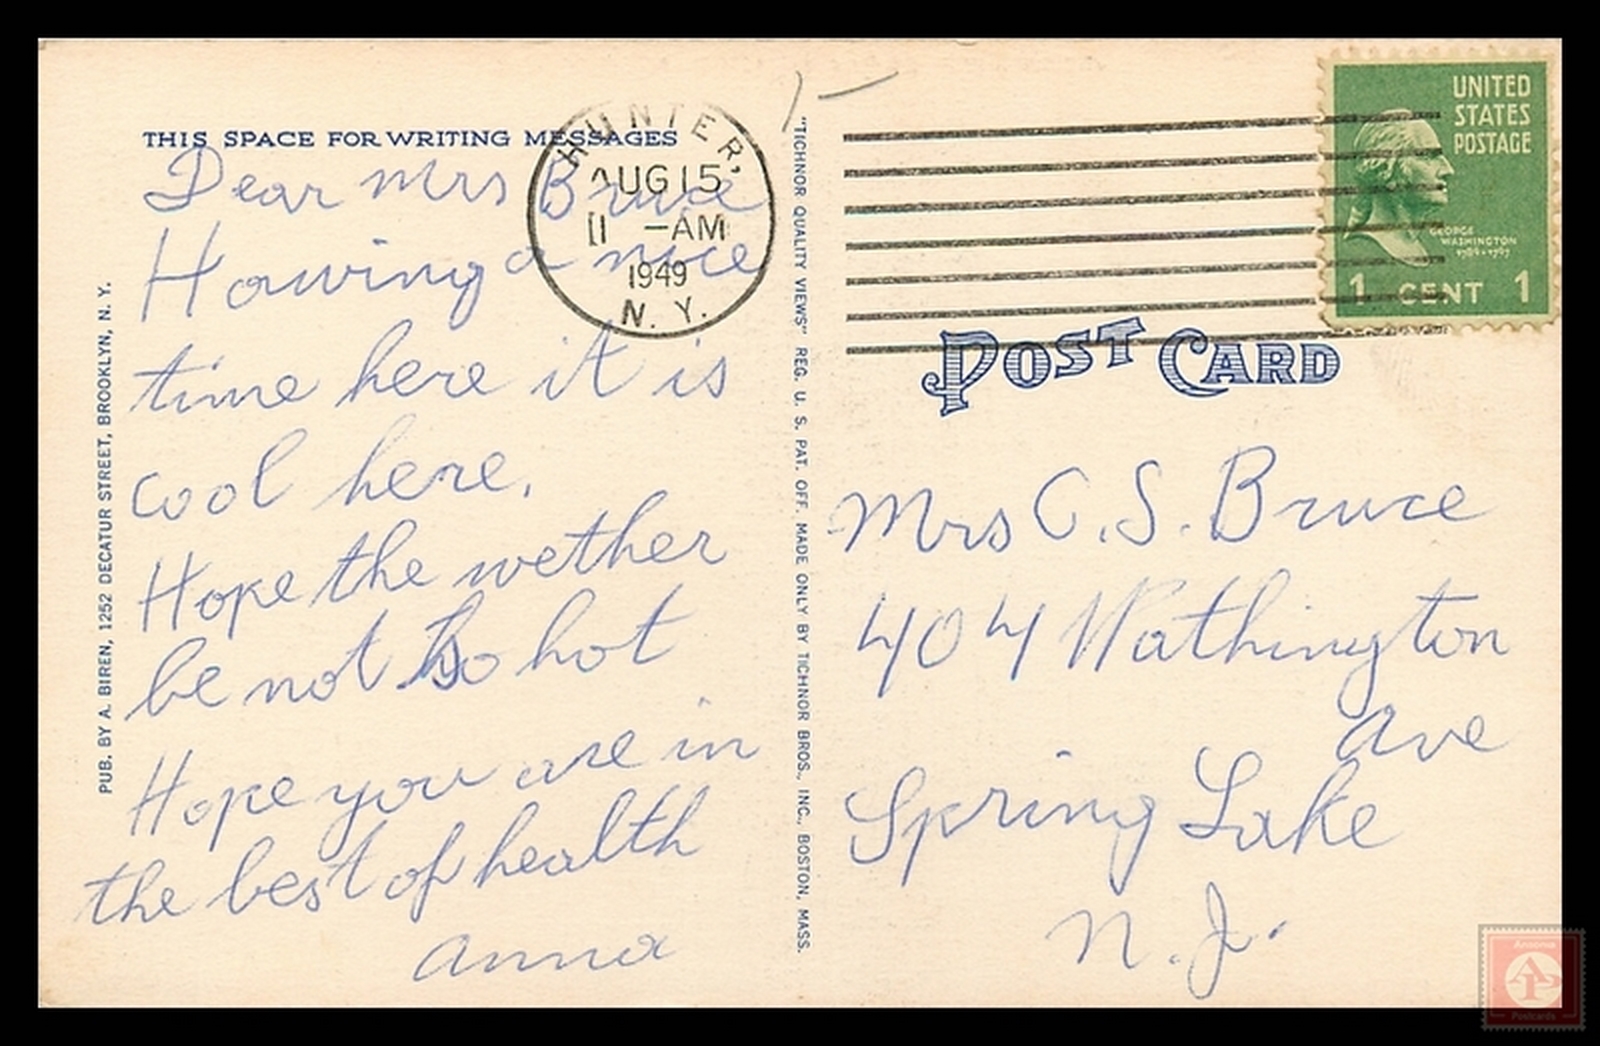 THIS SPACE FOR WRITING MESSAGES
Dear Mrs Bruce
Having a nice
time here it is
cool here.
Hope the wether
be not so hot
Hope you are in
the best of health
Anna
PUB. BY A. BIREN, 1252 DECATUR STREET, BROOKLYN, N. Y.
HUNTER,
AUG 15
11 -AM
1949
N. Y.
"TICHNOR QUALITY VIEWS" REG. U. S. PAT. OFF. MADE ONLY BY TICHNOR BROS., INC., BOSTON, MASS.
UNITED
STATES
POSTAGE
GEORGE
WASHINGTON
1 CENT 1
POST CARD
Mrs C. S. Bruce
404 Wathington
Ave
Spring Lake
N. J.
Ansonia
AP
Postcards